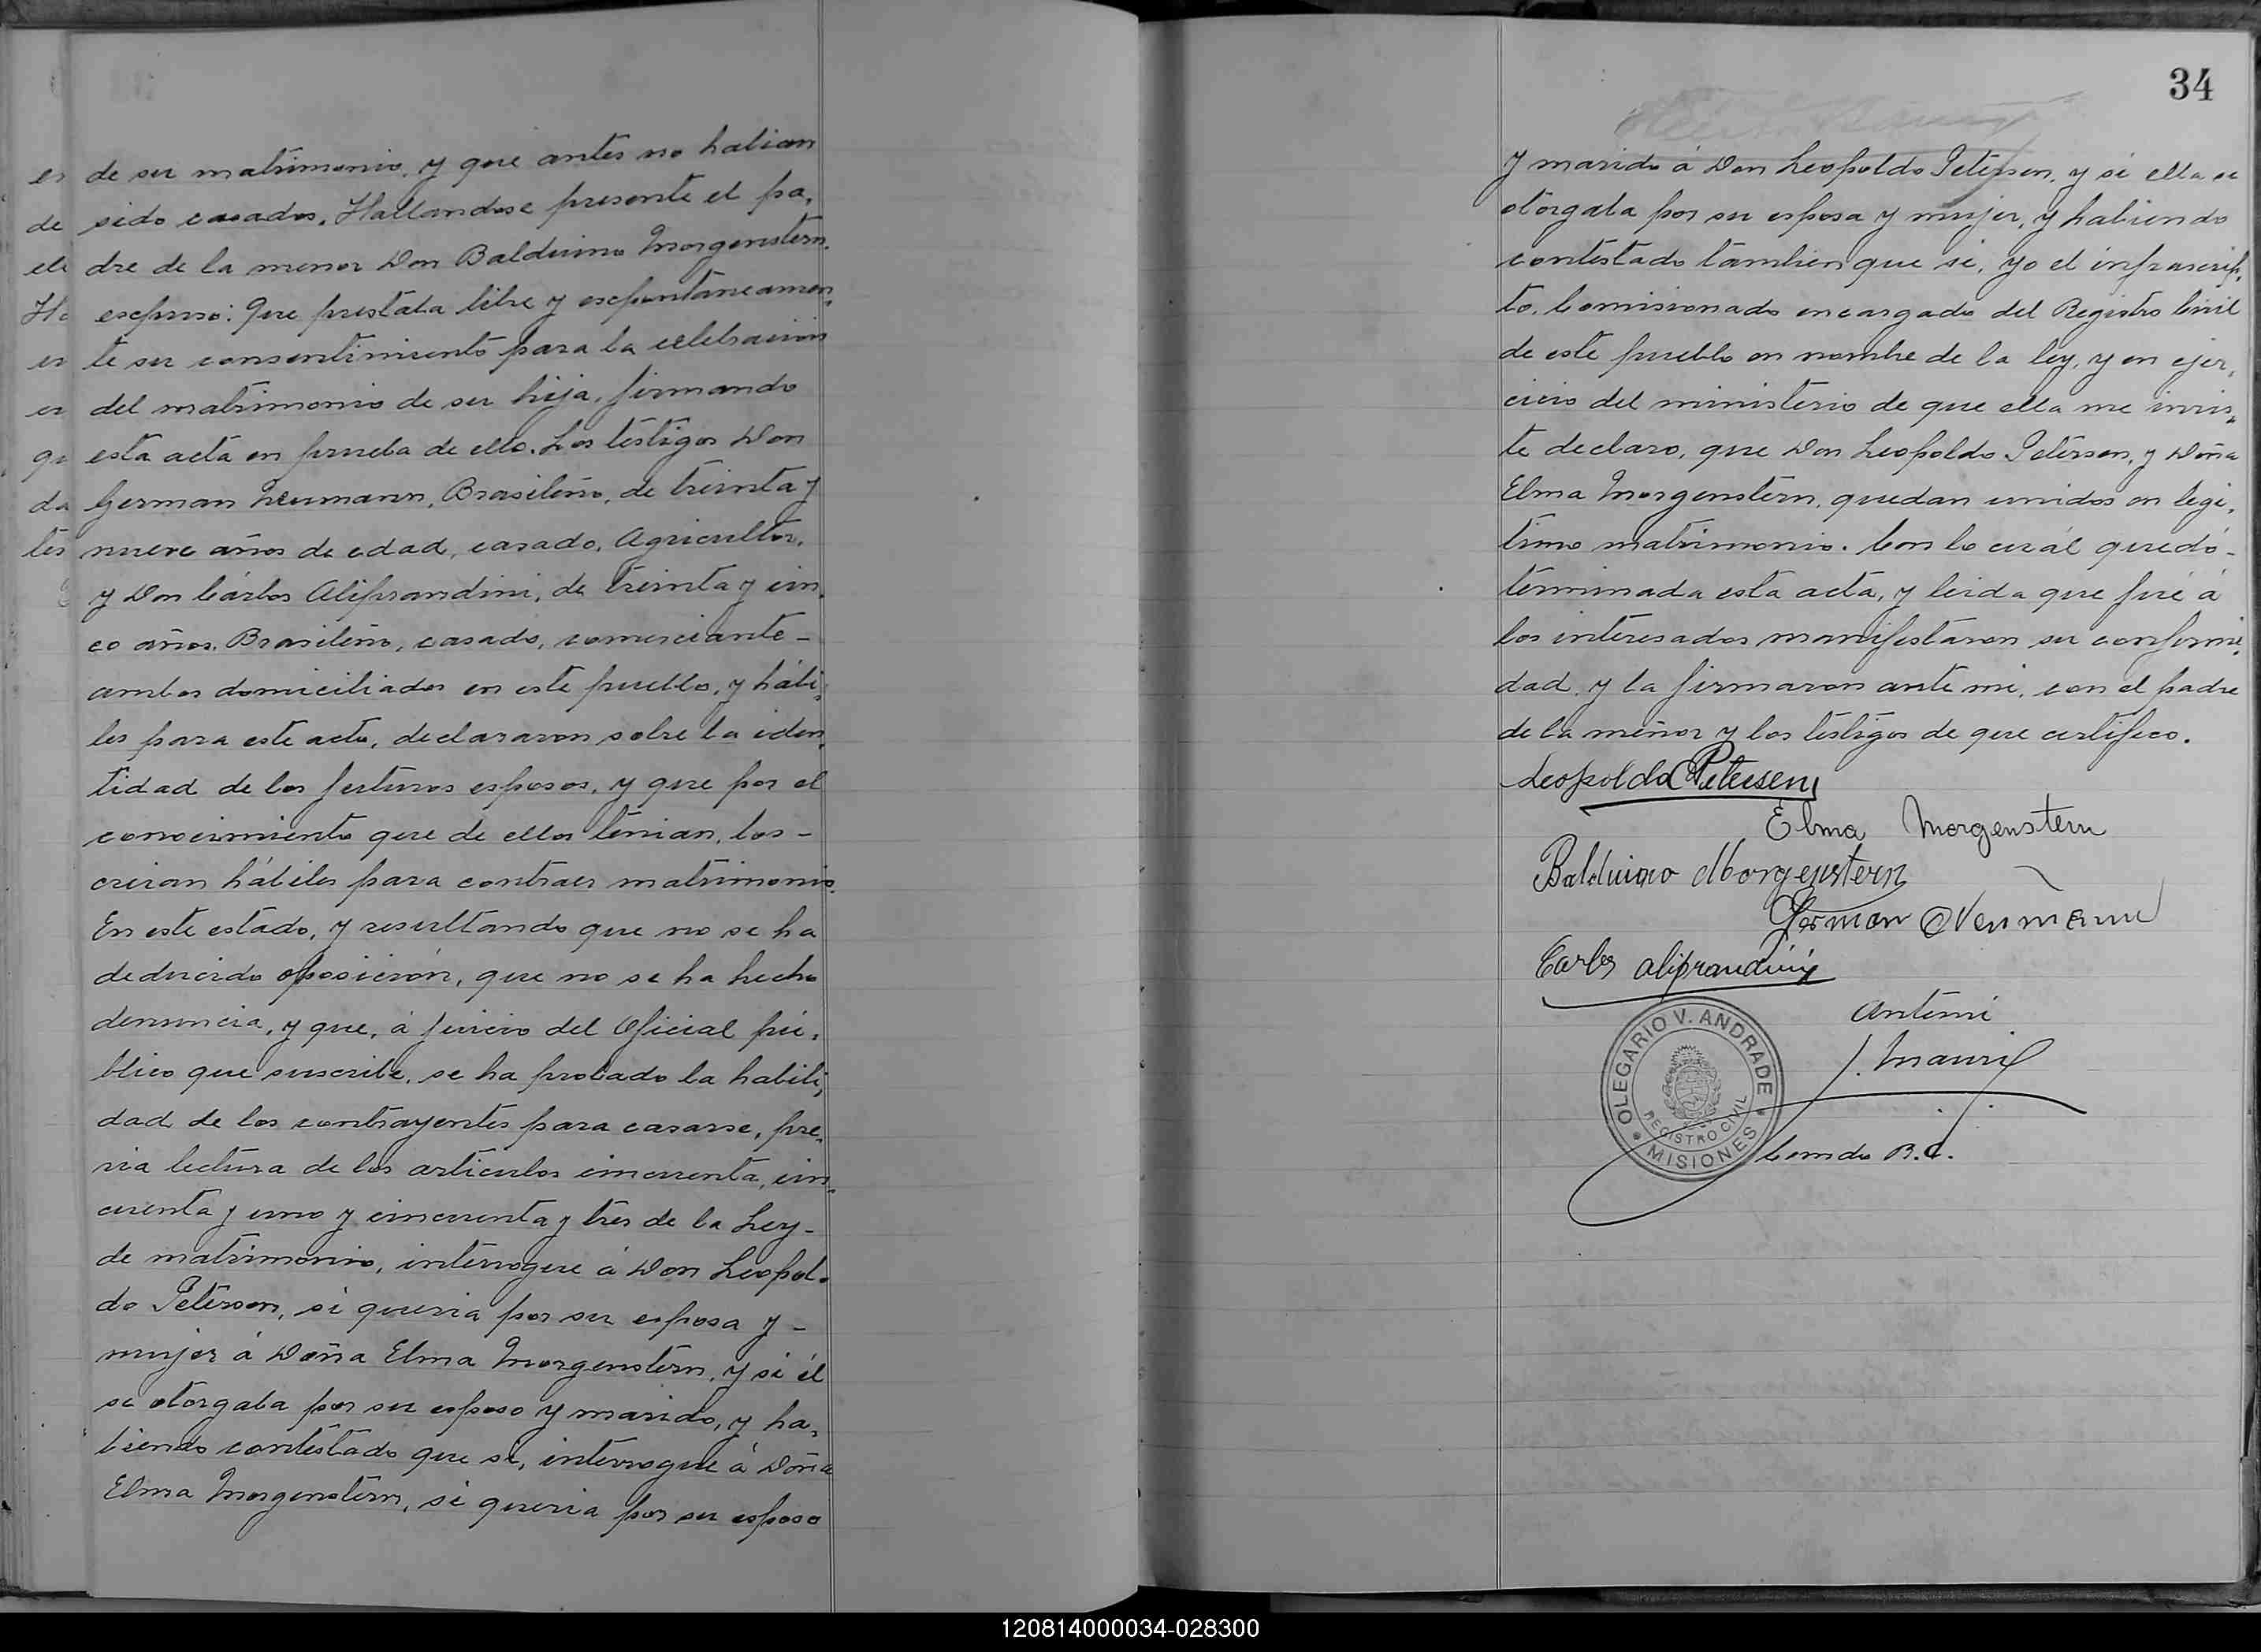 de su matrimonio, y que antes no habian
sido casados. Hallandose presente el pa,
dre de la menor Don Balduino Morgenstern.
escpuso: Que prestaba libre y escpontaneamen,
te su consentimiento para la celebracion
del matrimonio de su hija, firmando
esta acta en prueba de ello. Los testigos Don
German Neumann, Brasileño, de treinta y
nueve años de edad, casado, Agricultor,
y Don Cárlos Aliprandini, de treinta y cin,
co años, Brasileño, casado, comerciante -
ambos domiciliados en este pueblo, y hábi,
les para este acto, declararon sobre la iden,
tidad de los futuros esposos, y que por el
conocimiento que de ellos tenian, los -
creian hábiles para contraer matrimonio.
En este estado, y resultando que no se ha
deducido oposición, que no se ha hecho
denuncia, y que, á juicio del Oficial pú,
blico que suscribe, se ha probado la habili,
dad de los contrayentes para casarse, pre,
via lectura de los articulos cincuenta, cin,
cuenta y uno y cincuenta y tres de la Ley -
de matrimonio, interrogue á Don Leopol,
do Petersen, si queria por su esposa y -
mujer á Doña Elma Morgenstern, y si él
se otorgaba por su esposo y marido, y ha,
biendo contestado que si, interrogué á Doña
Elma Morgenstern, si queria por su esposo
es
de
ele
Ha
en
en
qu
da
tes
34
y marido á Don Leopoldo Petersen, y si ella se
otorgaba por su esposa y mujer, y habiendo
contestado tambien que si, yo el infrascrip,
to, Comisionado encargado del Registro Civil
de este pueblo en nombre de la ley, y en ejer,
cicio del ministerio de que ella me invis,
te declaro, que Don Leopoldo Petersen, y Doña
Elma Morgenstern, quedan unidos en legi,
timo matrimonio. Con lo cuál quedó -
terminada esta acta, y leida que fué á
los interesados manifestaron su conformi,
dad, y la firmaron ante mi, con el padre
de la menor y los testigos de que certifico.
Leopoldo Petersen
Elma Morgenstern
Balduino Morgenstern
German Neumann
Carlos Aliprandini
Antemi
OLEGARIO V. ANDRADE
REGISTRO CIVIL
MISIONES
Comdo R.C.
120814000034-028300